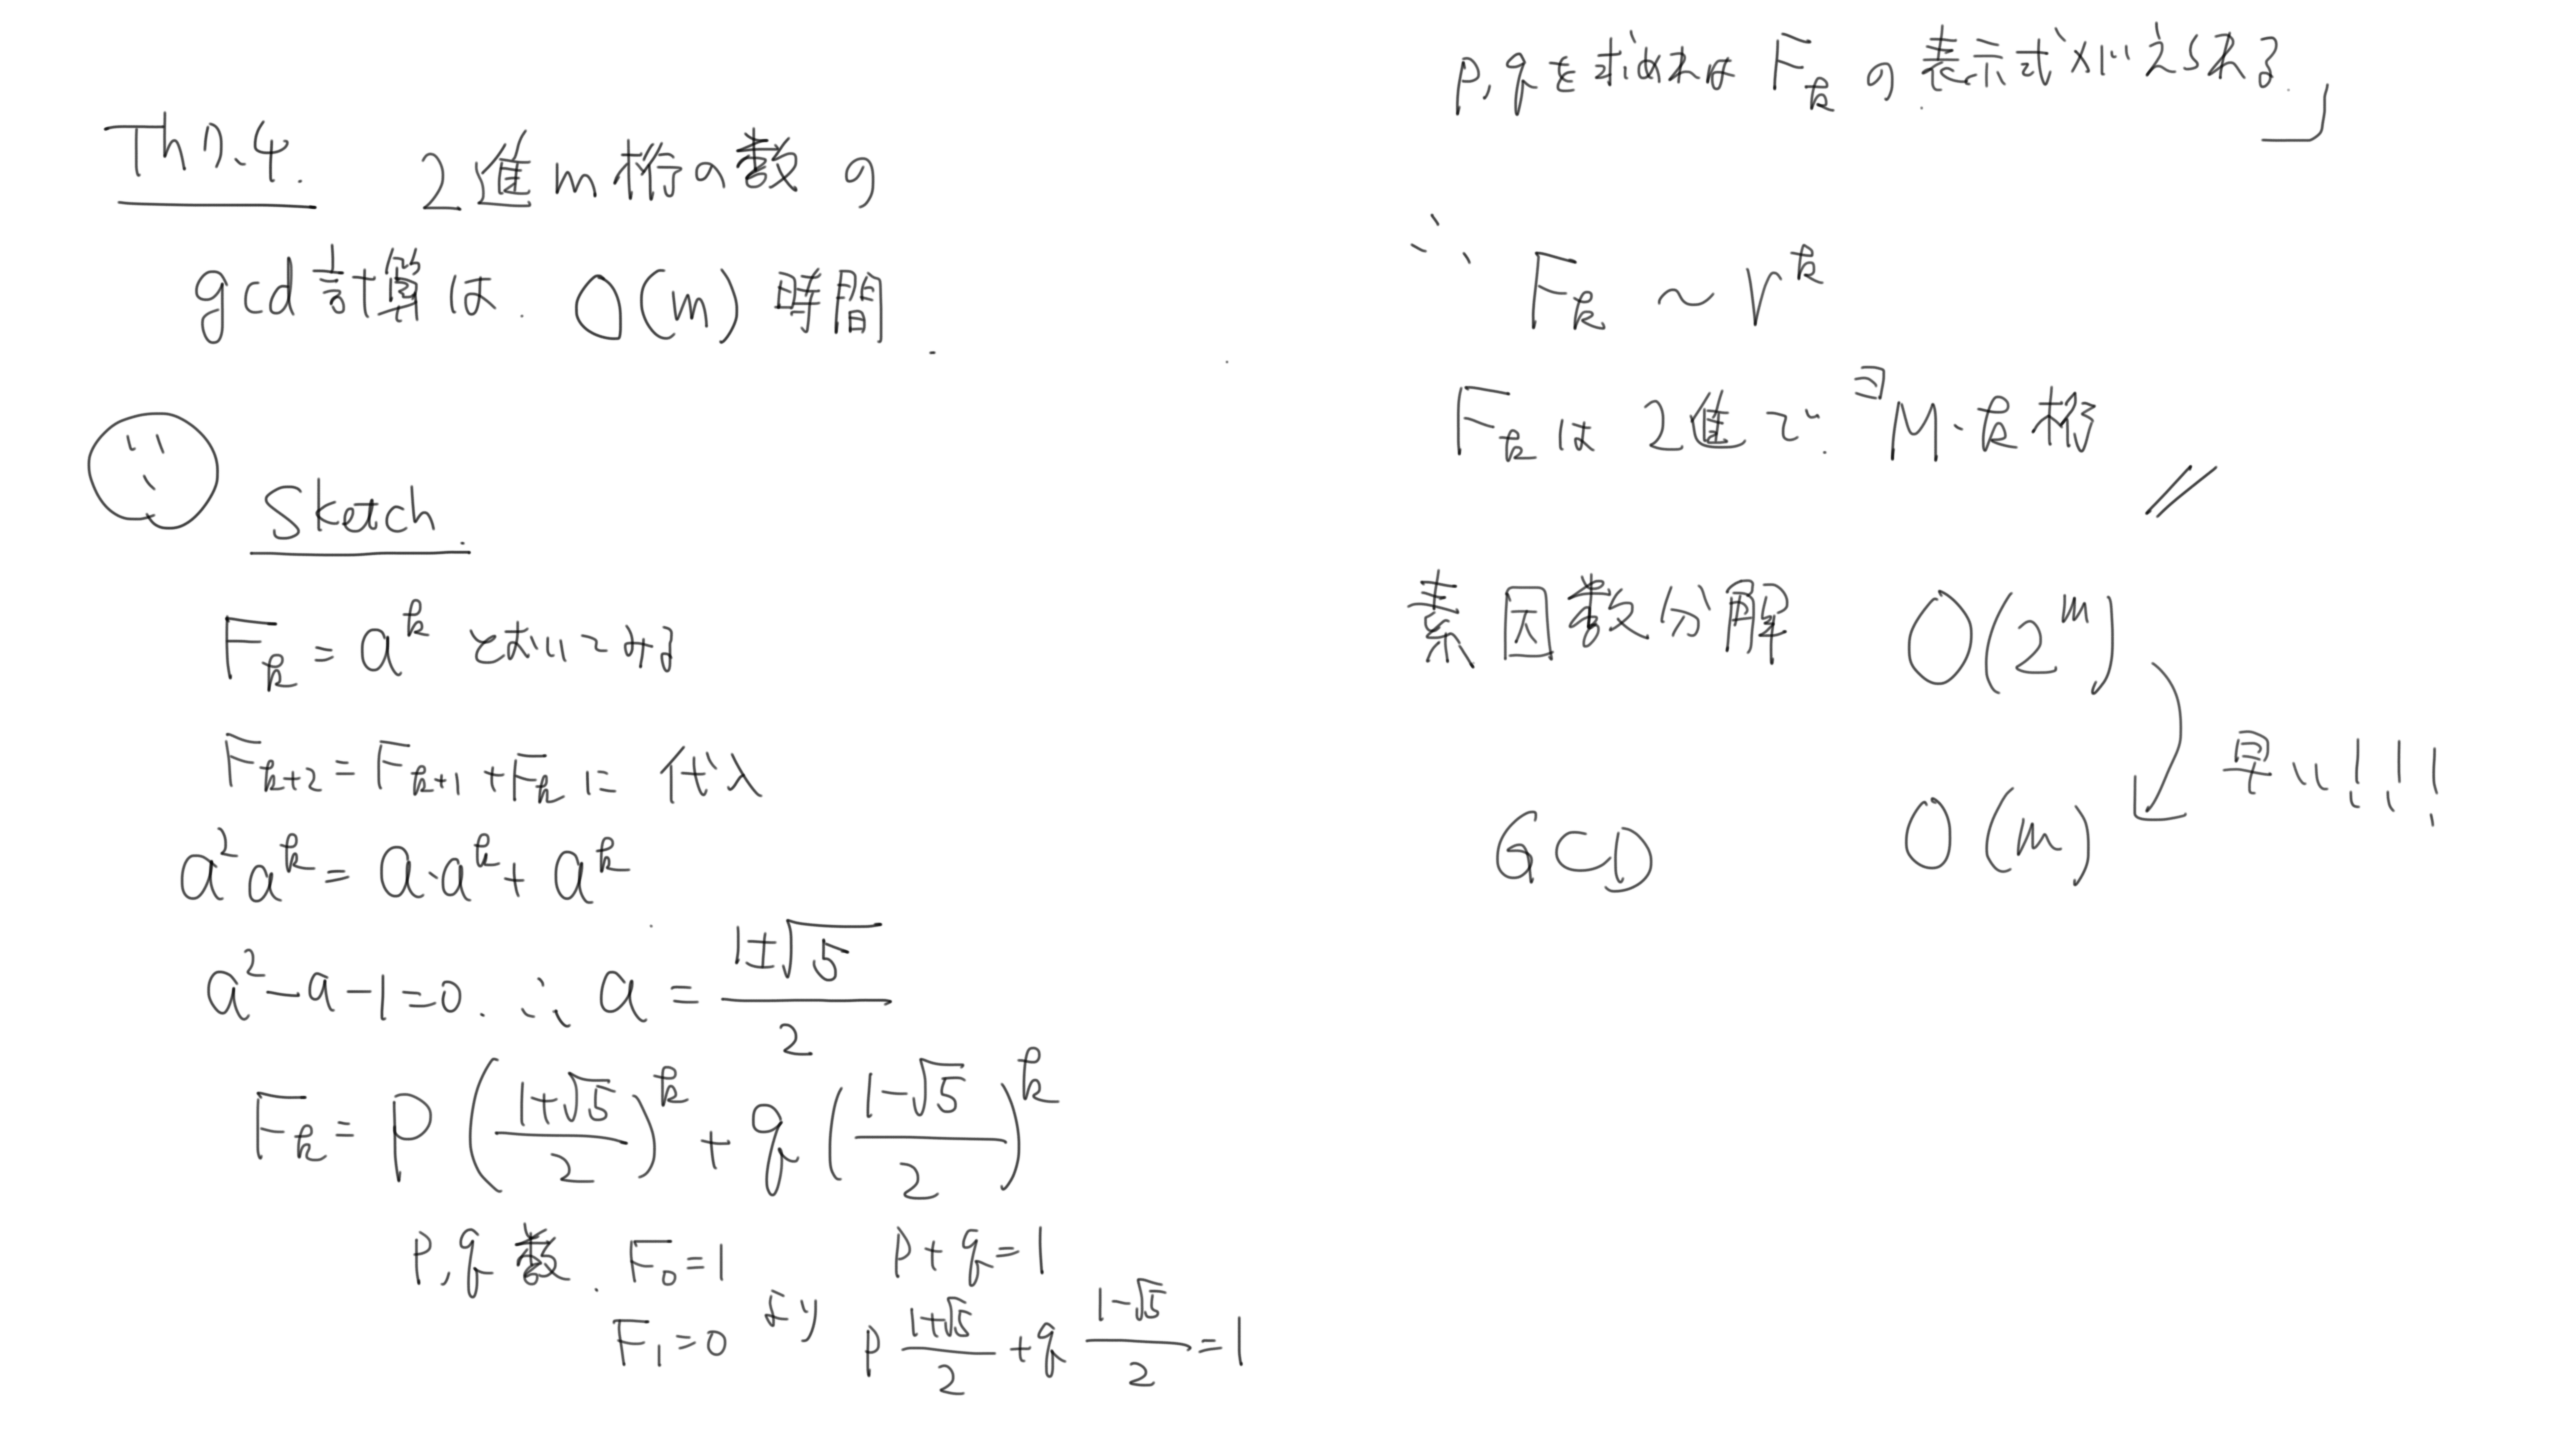 Th 7.4. 2進m桁の数の
gcd計算は. O(m) 時間.
∵ Sketch.
F_k = a^k とおいてみる
F_{k+2} = F_{k+1} + F_k に 代入
a^2 a^k = a・a^k + a^k
a^2 - a - 1 = 0. ∴ a = (1±√5)/2
F_k = p((1+√5)/2)^k + q((1-√5)/2)^k
p, q 数. F_0 = 1
F_1 = 0 より
p + q = 1
p (1+√5)/2 + q (1-√5)/2 = 1
p, qを求めれば F_k の表示式がえられる.」
∴ F_k ~ r^k
F_k は 2進で. ∃M・k桁 //
素因数分解 O(2^m)
早い!!!
GCD O(m)